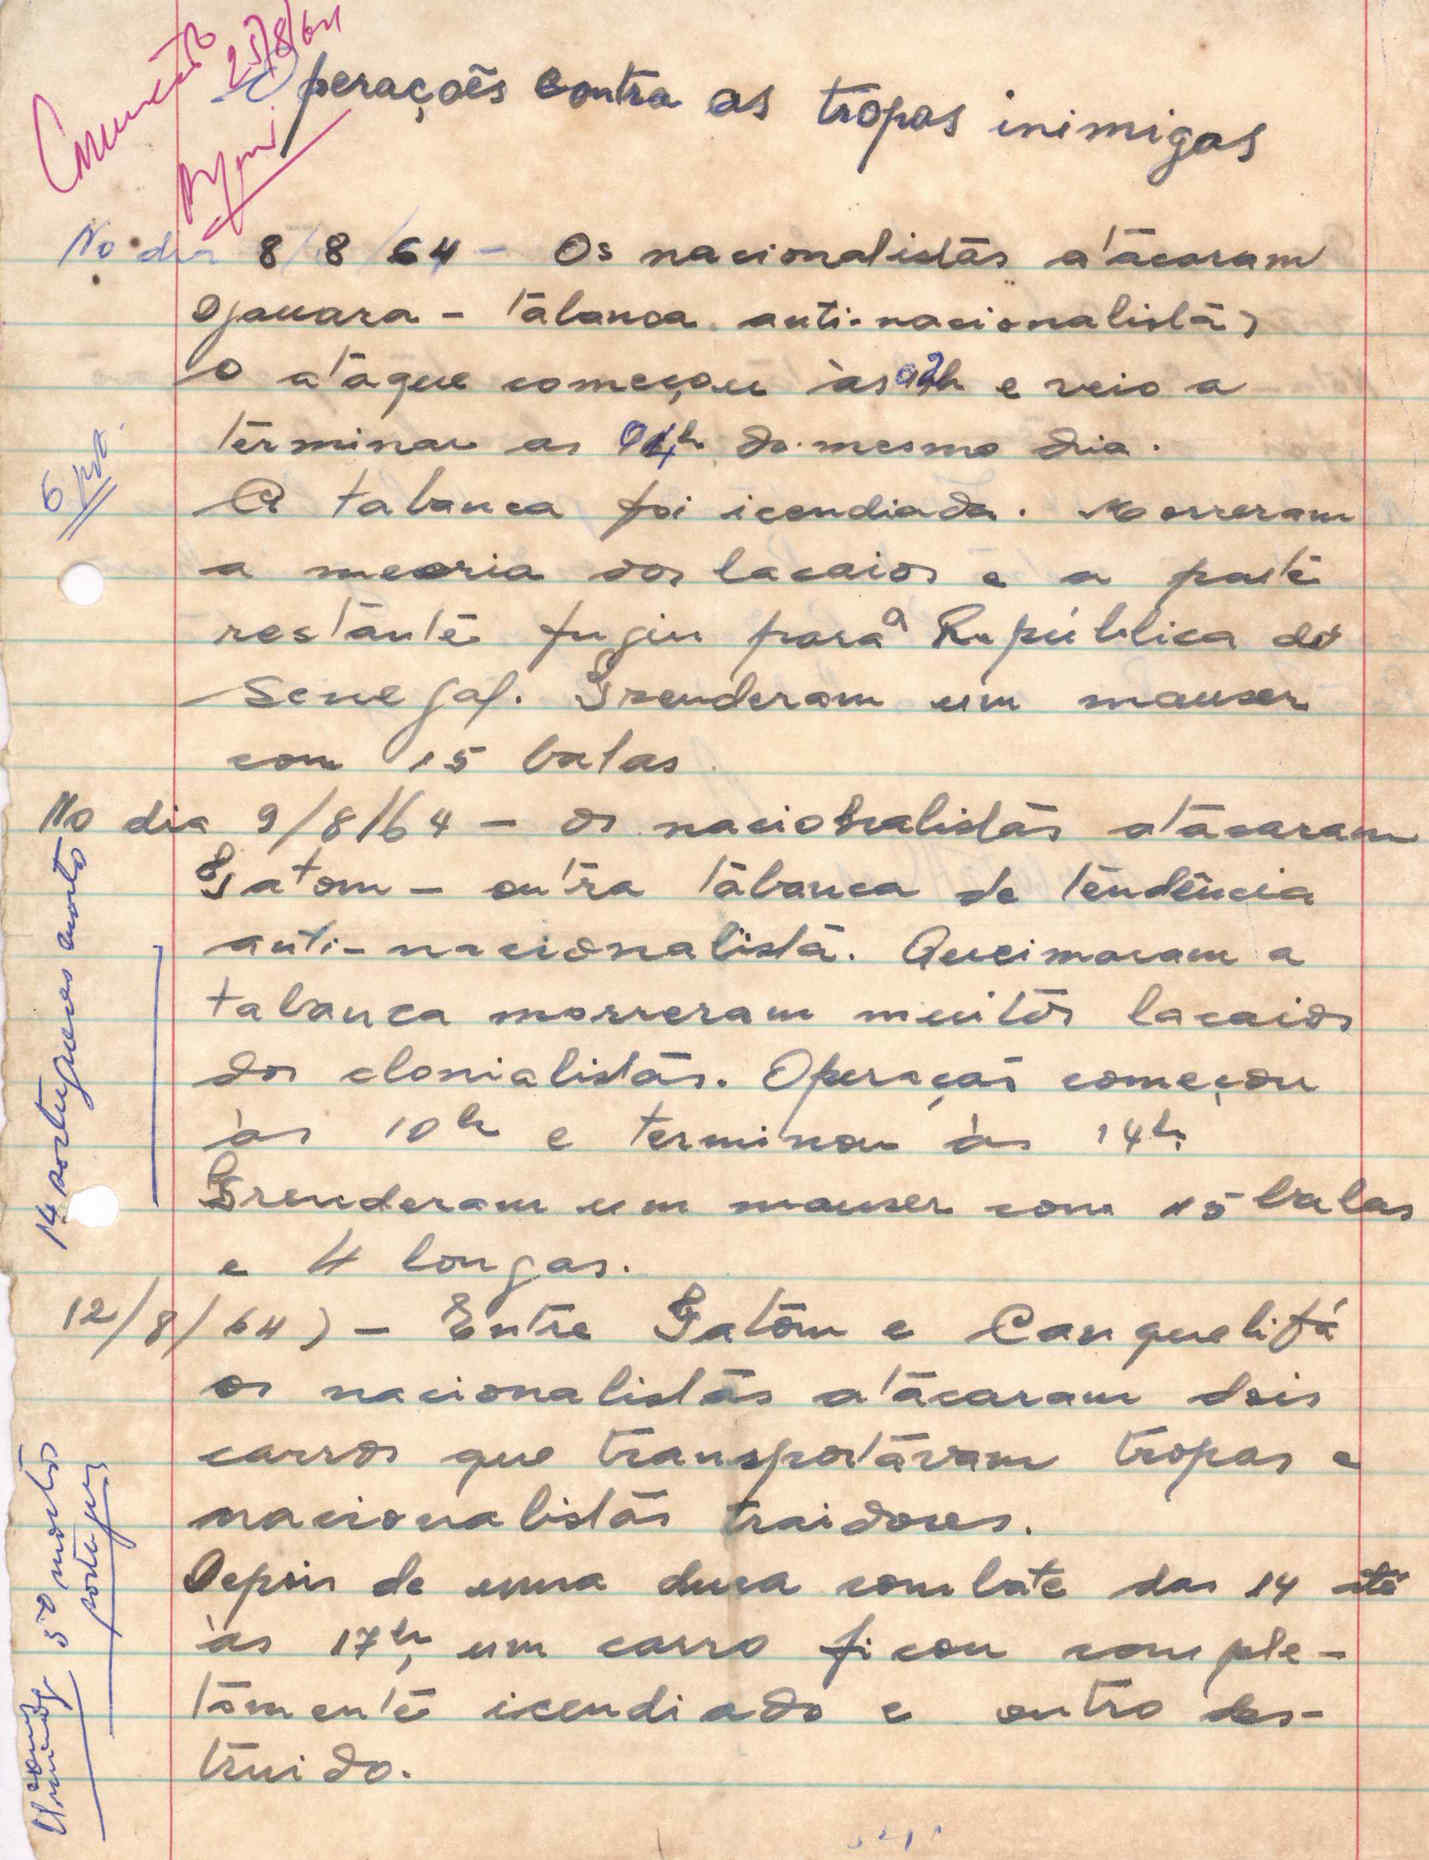 25/8/64
Operações contra as tropas inimigas
No dia 8/8/64 - Os nacionalistas atacaram
- tabanca anti-nacionalista,
O ataque começou às 02h e veio a
terminar as 04h do mesmo dia.
A tabanca foi icendiada. Morreram
a meoria dos lacaios e a parte
restante fugiu para a República do
Senegal. Prenderam um mauser
com 15 balas
No dia 9/8/64 - os nacionalistas atacaram
Patom - outra tabanca de tendência
anti-nacionalista. Queimaram a
tabanca morreram muitos lacaios
dos clonialistas. Operação começou
às 10h e terminou às 14h.
Prenderam um mauser com 15 balas
e 4 longas.
14 portugueses mortos
12/8/64) - Entre Patom e Canquelifá
os nacionalistas atacaram dois
carros que transportavam tropas e
nacionalistas traidores.
Depois de uma dura combate das 14 até
às 17h, um carro ficou comple-
tamente icendiado e outro des-
truido.
50 mortos